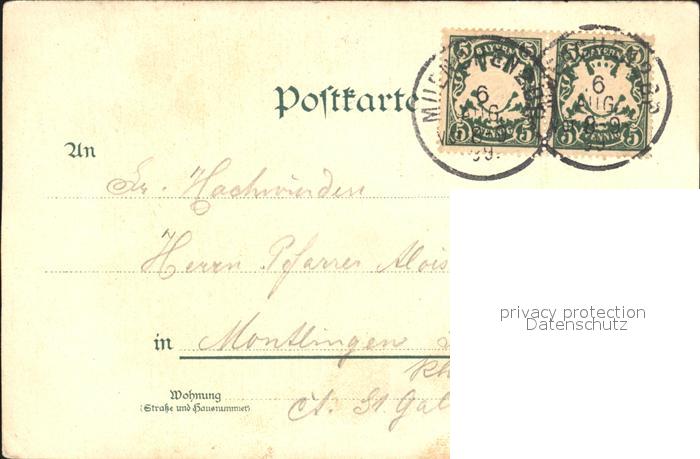 Postkarte
5 BAYERN 5
5 PFENNIG 5
5 BAYERN 5
5 PFENNIG 5
6
AUG
99.
6
AUG
8-9
An
Sr. Hochwürden
Herrn Pfarrer Alois
in Montlingen
Rh
Ct. St. Gal
Wohnung
(Straße und Hausnummer)
privacy protection
Datenschutz